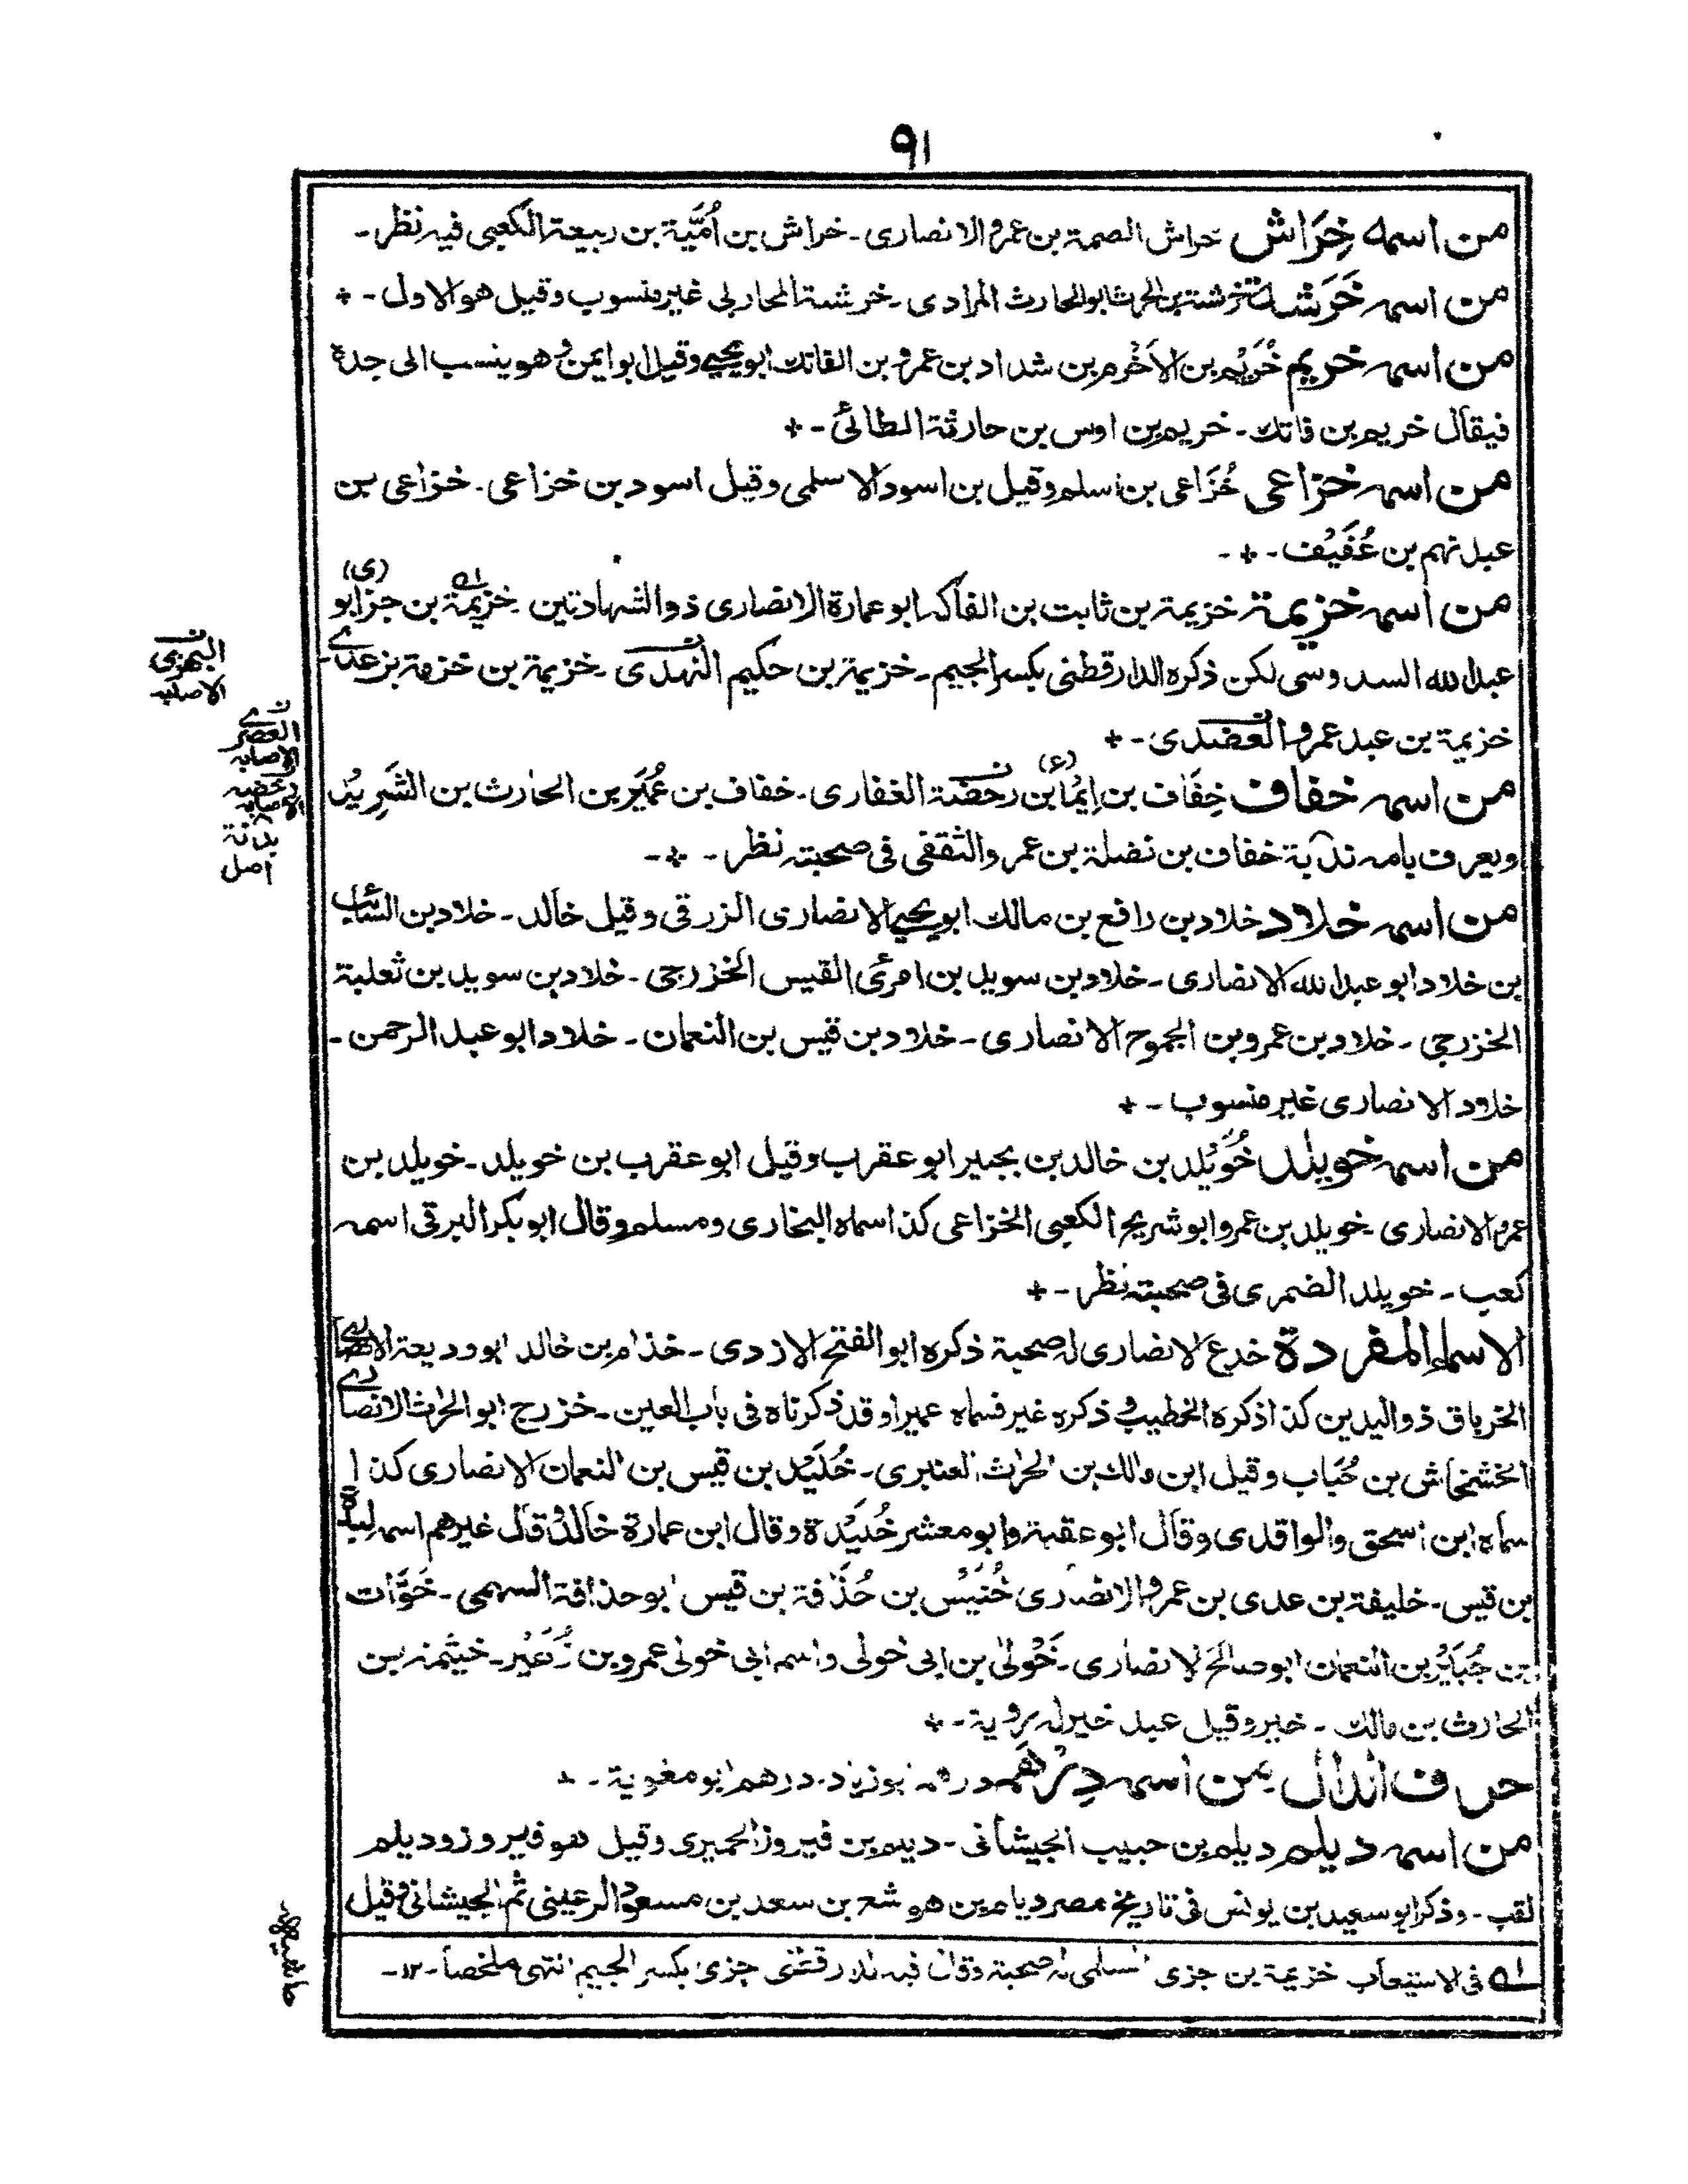 ٩١
من اسمه خِرَاش خراش الصمة بن عمرو الانصارى۔ خراش بن اُمَيَّة بن ربيعة الكعبى فيه نظر۔
من اسمه خَرَشة خرشة بن الحرث ابو الحارث المرادى۔ خرشة المحاربى غير منسوب وقيل هو الاول۔ +
من اسمه خريم خُرَيْم بن الاَخْرم بن شداد بن عمرو بن الفاتك ابو يحيى وقيل ابو ايمن وهو ينسب الى جده
فيقال خريم بن فاتك۔ خريم بن اوس بن حارثة الطائى۔ +
من اسمه خزاعى خُزَاعى بن اسلم وقيل بن اسود الاسلمى وقيل اسود بن خزاعى۔ خزاعى بن
عبد نهم بن عُفَيْف۔ +۔
من اسمه خزيمة خزيمة بن ثابت بن الفاكه ابو عمارة الانصارى ذو الشهادتين۔ خزيمة بن جز(ى) ابو
عبد الله السدوسى لكن ذكره الدارقطنى بكسر الجيم۔ خزيمة بن حكيم النهدى۔ خزيمة بن خزمة بن عدى۔
خزيمة بن عبد عمرو العضدى۔ +
من اسمه خفاف خِفَاف بن اِيْمَا(ء) بن رحضة الغفارى۔ خفاف بن عُمَير بن الحارث بن الشَرِيْد
ويعرف بامه ندبة خفاف بن نضلة بن عمر والثقفى فى صحبته نظر۔ +۔
من اسمه خلاد خلاد بن رافع بن مالك ابو يحيى الانصارى الزرقى وقيل خالد۔ خلاد بن السائب
بن خلاد ابو عبد الله الانصارى۔ خلاد بن سويد بن امرئ القيس الخزرجى۔ خلاد بن سويد بن ثعلبة
الخزرجى۔ خلاد بن عمرو بن الجموح الانصارى۔ خلاد بن قيس بن النعمان۔ خلاد ابو عبد الرحمن۔
خلاد الانصارى غير منسوب۔ +
من اسمه خويلد خُوَيْلد بن خالد بن بجير ابو عقرب وقيل ابو عقرب بن خويلد۔ خويلد بن
عمرو الانصارى۔ خويلد بن عمرو ابو شريح الكعبى الخزاعى كذا سماه البخارى ومسلم وقال ابو بكر البرقى اسمه
كعب۔ خويلد الضمرى فى صحبته نظر۔ +
الاسماء المفردة خدع الانصارى له صحبة ذكره ابو الفتح الازدى۔ خذام بن خالد ابو وديعة الانصارى
الخرباق ذو اليدين كذا ذكره الخطيب وذكره غير فسماه عميرا وقد ذكرناه فى باب العين۔ خزرج ابو الحرث الانصارى
الخشخاش بن حُبَاب وقيل ابن مالك بن الحرث العنبرى۔ خُلَيْد بن قيس بن النعمان الانصارى كذا
سماه ابن اسحق والواقدى وقال ابو عقبة وابو معشر خُلَيْدة وقال ابن عمارة خالد وقال غيرهم اسمه لبدة
بن قيس۔ خليفة بن عدى بن عمرو الانصارى خُنَيْس بن حُذَافة بن قيس ابو حذافة السهمى۔ خَوَّات
بن جُبَيْر بن النعمان ابو صالح الانصارى۔ خَوْلى بن ابى خولى واسم ابى خولى عمرو بن زُهَيْر۔ خيثمة بن
الحارث بن مالك۔ خير وقيل عبد خير له رؤية۔ +
حرف الدال من اسمه دِرْهَم درهم ابو زياد۔ درهم ابو معٰوية۔ +
من اسمه ديلم ديلم بن حبيب الجيشانى۔ ديلم بن فيروز الحميرى وقيل هو فيروز وديلم
لقب۔ وذكر ابو سعيد بن يونس فى تاريخ مصر ديلم بن هوشع بن سعد بن مسعود الرعينى ثم الجيشانى وقيل
١ه فى الاستيعاب خزيمة بن جزى السلمى له صحبة وقال فيه الدارقطنى جزى بكسر الجيم انتهى ملخصا۔١٢۔
العصرى
الاصابه
رحضه
الاصابه
اصل